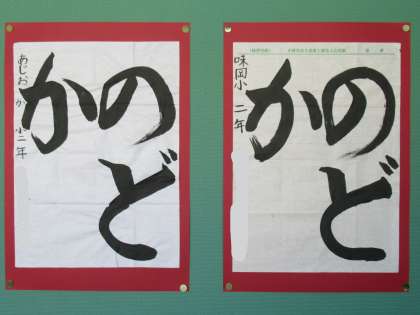 のど
か
あじおか 小二年
のど
か
味岡小 二年